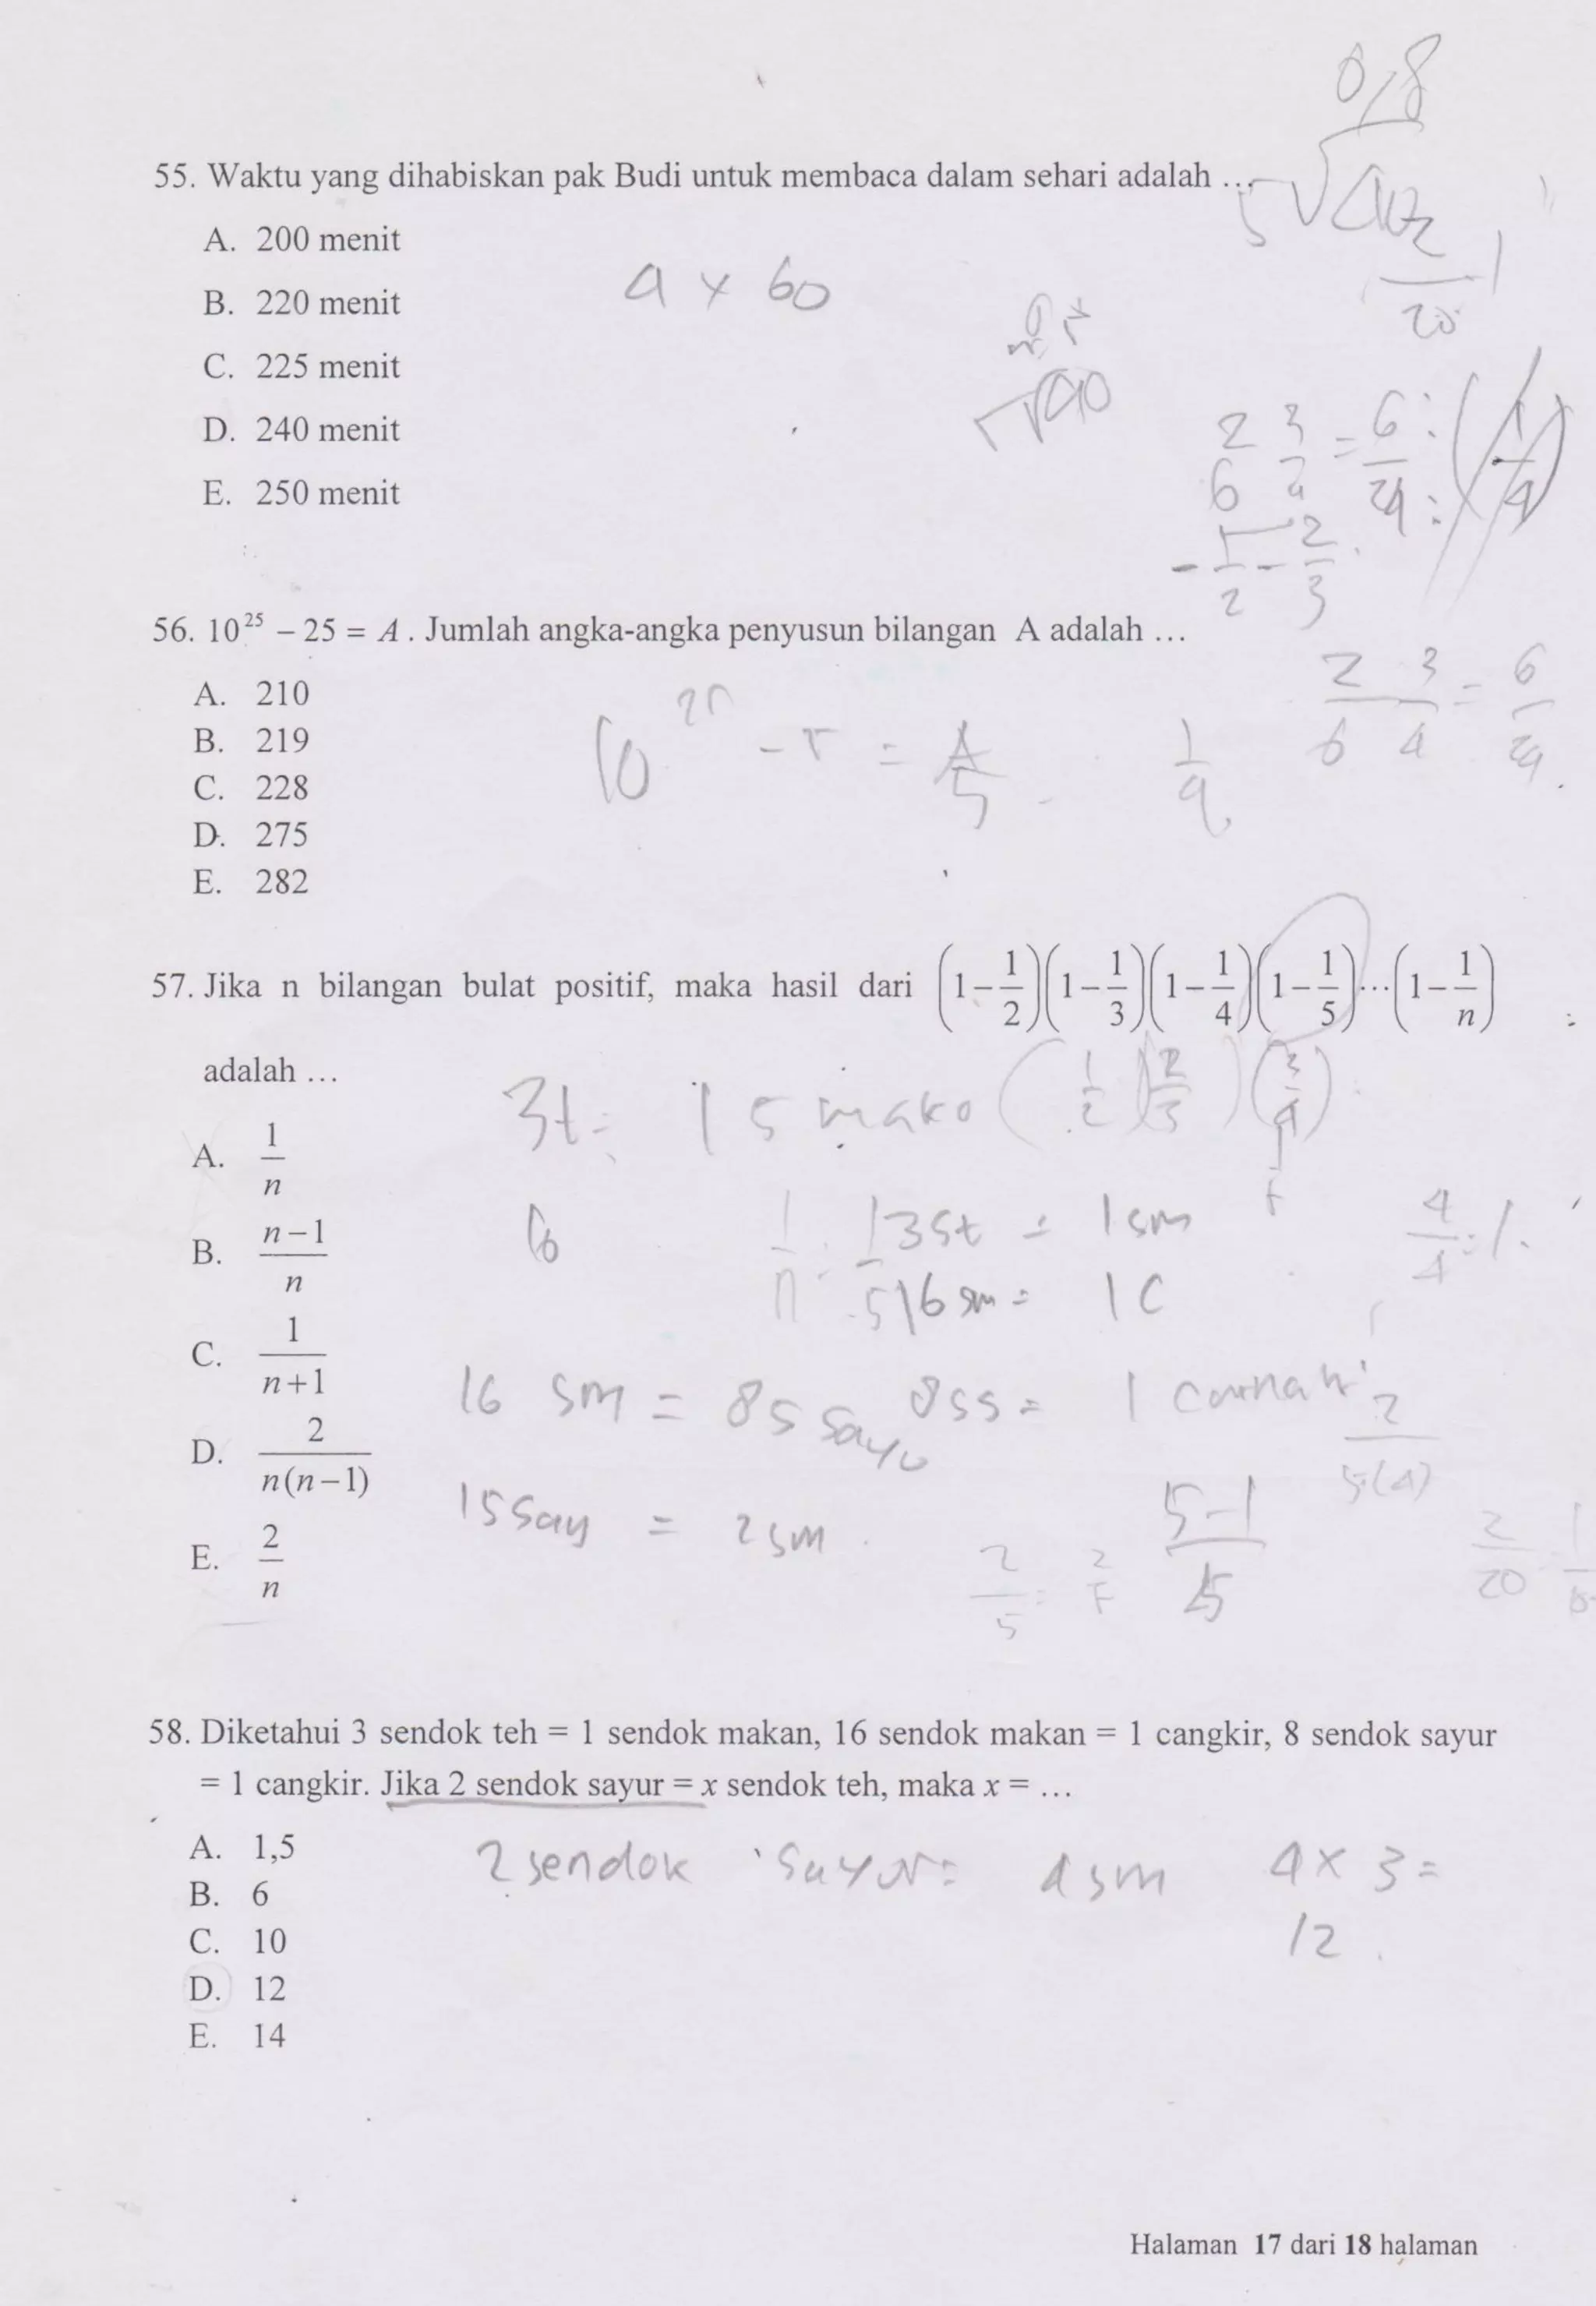 0,8
55. Waktu yang dihabiskan pak Budi untuk membaca dalam sehari adalah …
A. 200 menit
B. 220 menit
C. 225 menit
D. 240 menit
E. 250 menit
a x 60
20
2 3 = 6
6
- 1/2 - 2/3
56. 10^25 – 25 = A . Jumlah angka-angka penyusun bilangan A adalah …
A. 210
B. 219
C. 228
D. 275
E. 282
2 3 = 6
6 4 24
1/9
57. Jika n bilangan bulat positif, maka hasil dari (1–1/2)(1–1/3)(1–1/4)(1–1/5)…(1–1/n)
adalah …
A. 1/n
B. (n–1)/n
C. 1/(n+1)
D. 2/(n(n–1))
E. 2/n
3t = 15 (1/2)(2/3)(3/4)
1/n 1/5
3st = 1sm
16 sm = 1C
16 sm = 8s sayu 8ss = 1
15say = 2sm
2/5 = 5-1
2/5(4)
2/20
58. Diketahui 3 sendok teh = 1 sendok makan, 16 sendok makan = 1 cangkir, 8 sendok sayur
= 1 cangkir. Jika 2 sendok sayur = x sendok teh, maka x = …
A. 1,5
B. 6
C. 10
D. 12
E. 14
2 sendok sayur = 4 sm 4 x 3 =
12
Halaman 17 dari 18 halaman